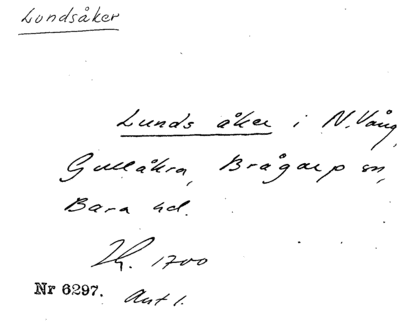 Lundsåker
Lunds åker i N. Vång,
Gullåkra, Brågarp sn,
Bara hd.
1700
Nr 6297. Ant 1.